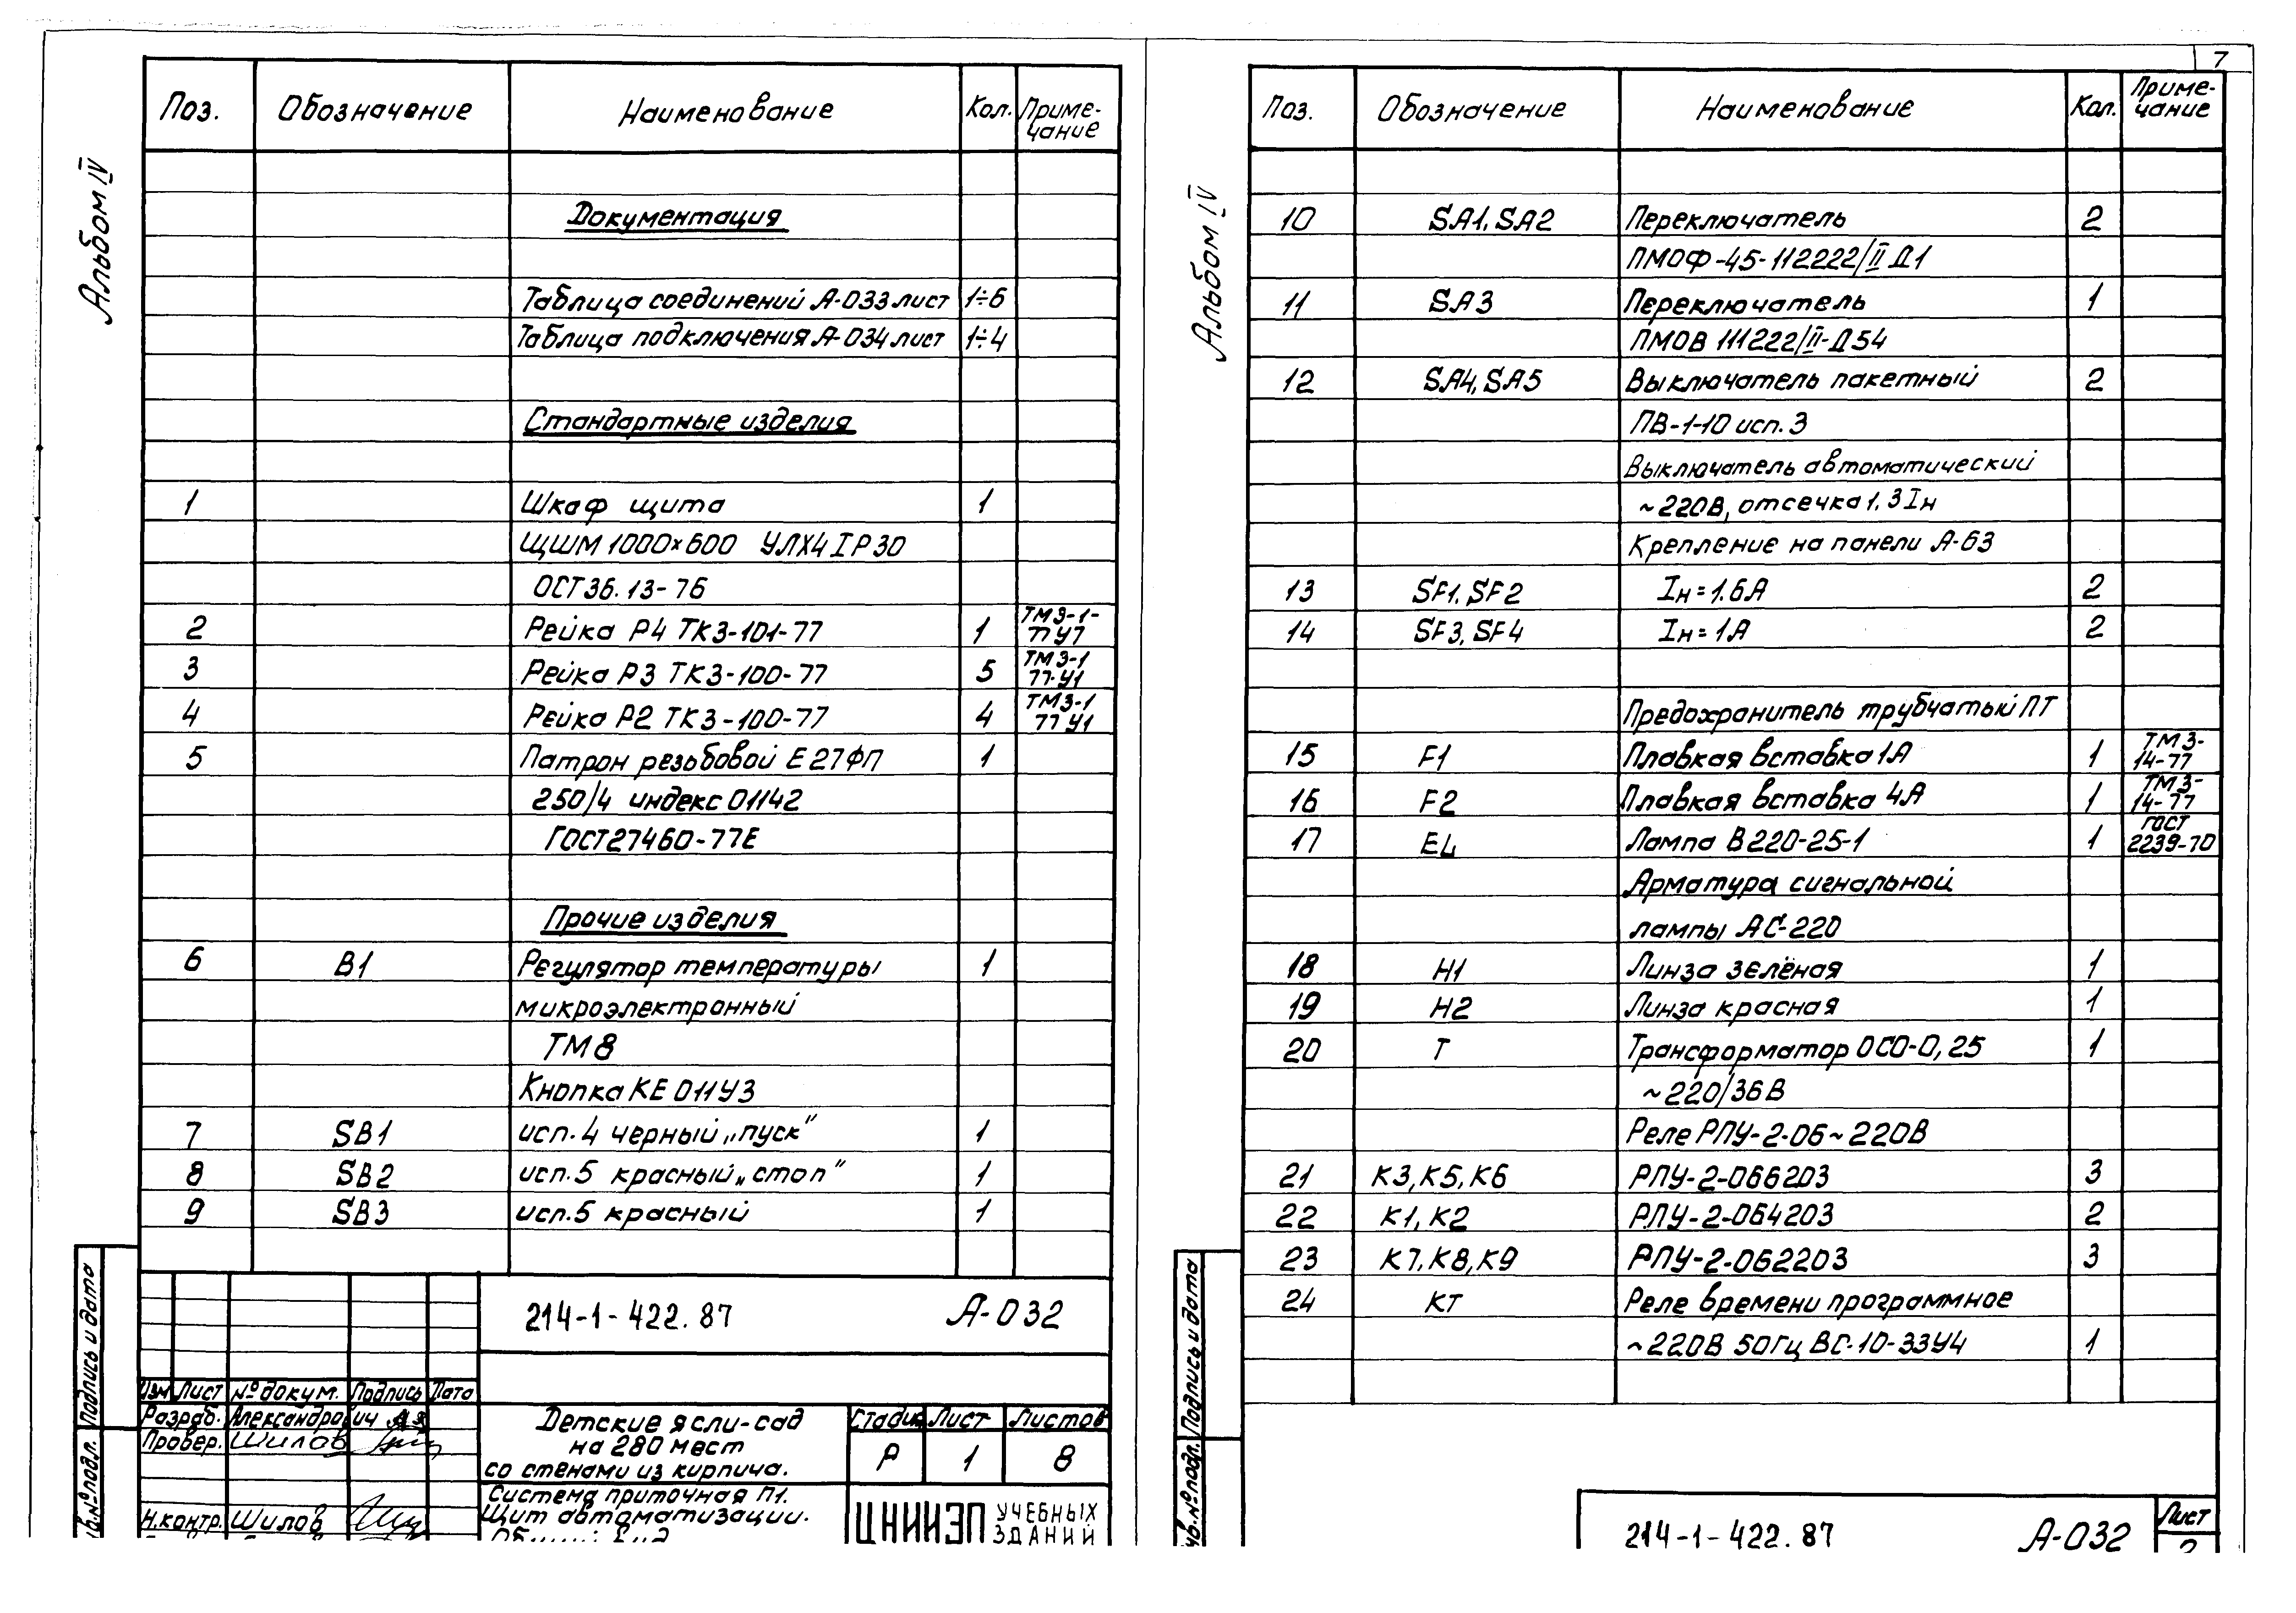 7
Альбом IV
Поз. Обозначение Наименование Кол. Приме-
чание
Документация
Таблица соединений А-033 лист 1÷6
Таблица подключения А-034 лист 1÷4
Стандартные изделия
1 Шкаф щита 1
ЩШМ 1000×600 УЛХ4 IP30
ОСТ 36.13-76
2 Рейка Р4 ТК3-101-77 1 ТМ3-1-
77У7
3 Рейка Р3 ТК3-100-77 5 ТМ3-1
77-У1
4 Рейка Р2 ТК3-100-77 4 ТМ3-1
77У1
5 Патрон резьбовой Е27ФП 1
250/4 индекс 01142
ГОСТ27460-77Е
Прочие изделия
6 В1 Регулятор температуры 1
микроэлектронный
ТМ8
Кнопка КЕ 011У3
7 SB1 исп.4 черный „пуск” 1
8 SB2 исп.5 красный „стоп” 1
9 SB3 исп.5 красный 1
214-1-422.87 А-032
Изм Лист № докум. Подпись Дата
Разраб. Александрович
Провер. Шилов
Н.контр. Шилов
Детские ясли-сад
на 280 мест
со стенами из кирпича.
Стадия Лист Листов
Р 1 8
Система приточная П1.
Щит автоматизации.
Общий вид
ЦНИИЭП УЧЕБНЫХ
ЗДАНИЙ
Подпись и дата
в.№подл.
Альбом IV
Поз. Обозначение Наименование Кол. Приме-
чание
10 SA1, SA2 Переключатель 2
ПМОФ-45-112222/II Д1
11 SA3 Переключатель 1
ПМОВ 111222/II-Д54
12 SA4, SA5 Выключатель пакетный 2
ПВ-1-10 исп.3
Выключатель автоматический
~220В, отсечка 1.3Iн
Крепление на панели А-63
13 SF1, SF2 Iн=1.6А 2
14 SF3, SF4 Iн=1А 2
Предохранитель трубчатый ПТ
15 F1 Плавкая вставка 1А 1 ТМ3-
14-77
16 F2 Плавкая вставка 4А 1 ТМ3-
14-77
17 EL Лампа В220-25-1 1 ГОСТ
2239-70
Арматура сигнальной
лампы АС-220
18 Н1 Линза зелёная 1
19 Н2 Линза красная 1
20 Т Трансформатор ОСО-0,25 1
~220/36В
Реле РПУ-2-06~220В
21 К3, К5, К6 РПУ-2-066203 3
22 К1, К2 РПУ-2-064203 2
23 К7, К8, К9 РПУ-2-062203 3
24 КТ Реле времени программное
~220В 50Гц ВС-10-33У4 1
214-1-422.87 А-032 Лист
2
Подпись и дата
нв.№подл.